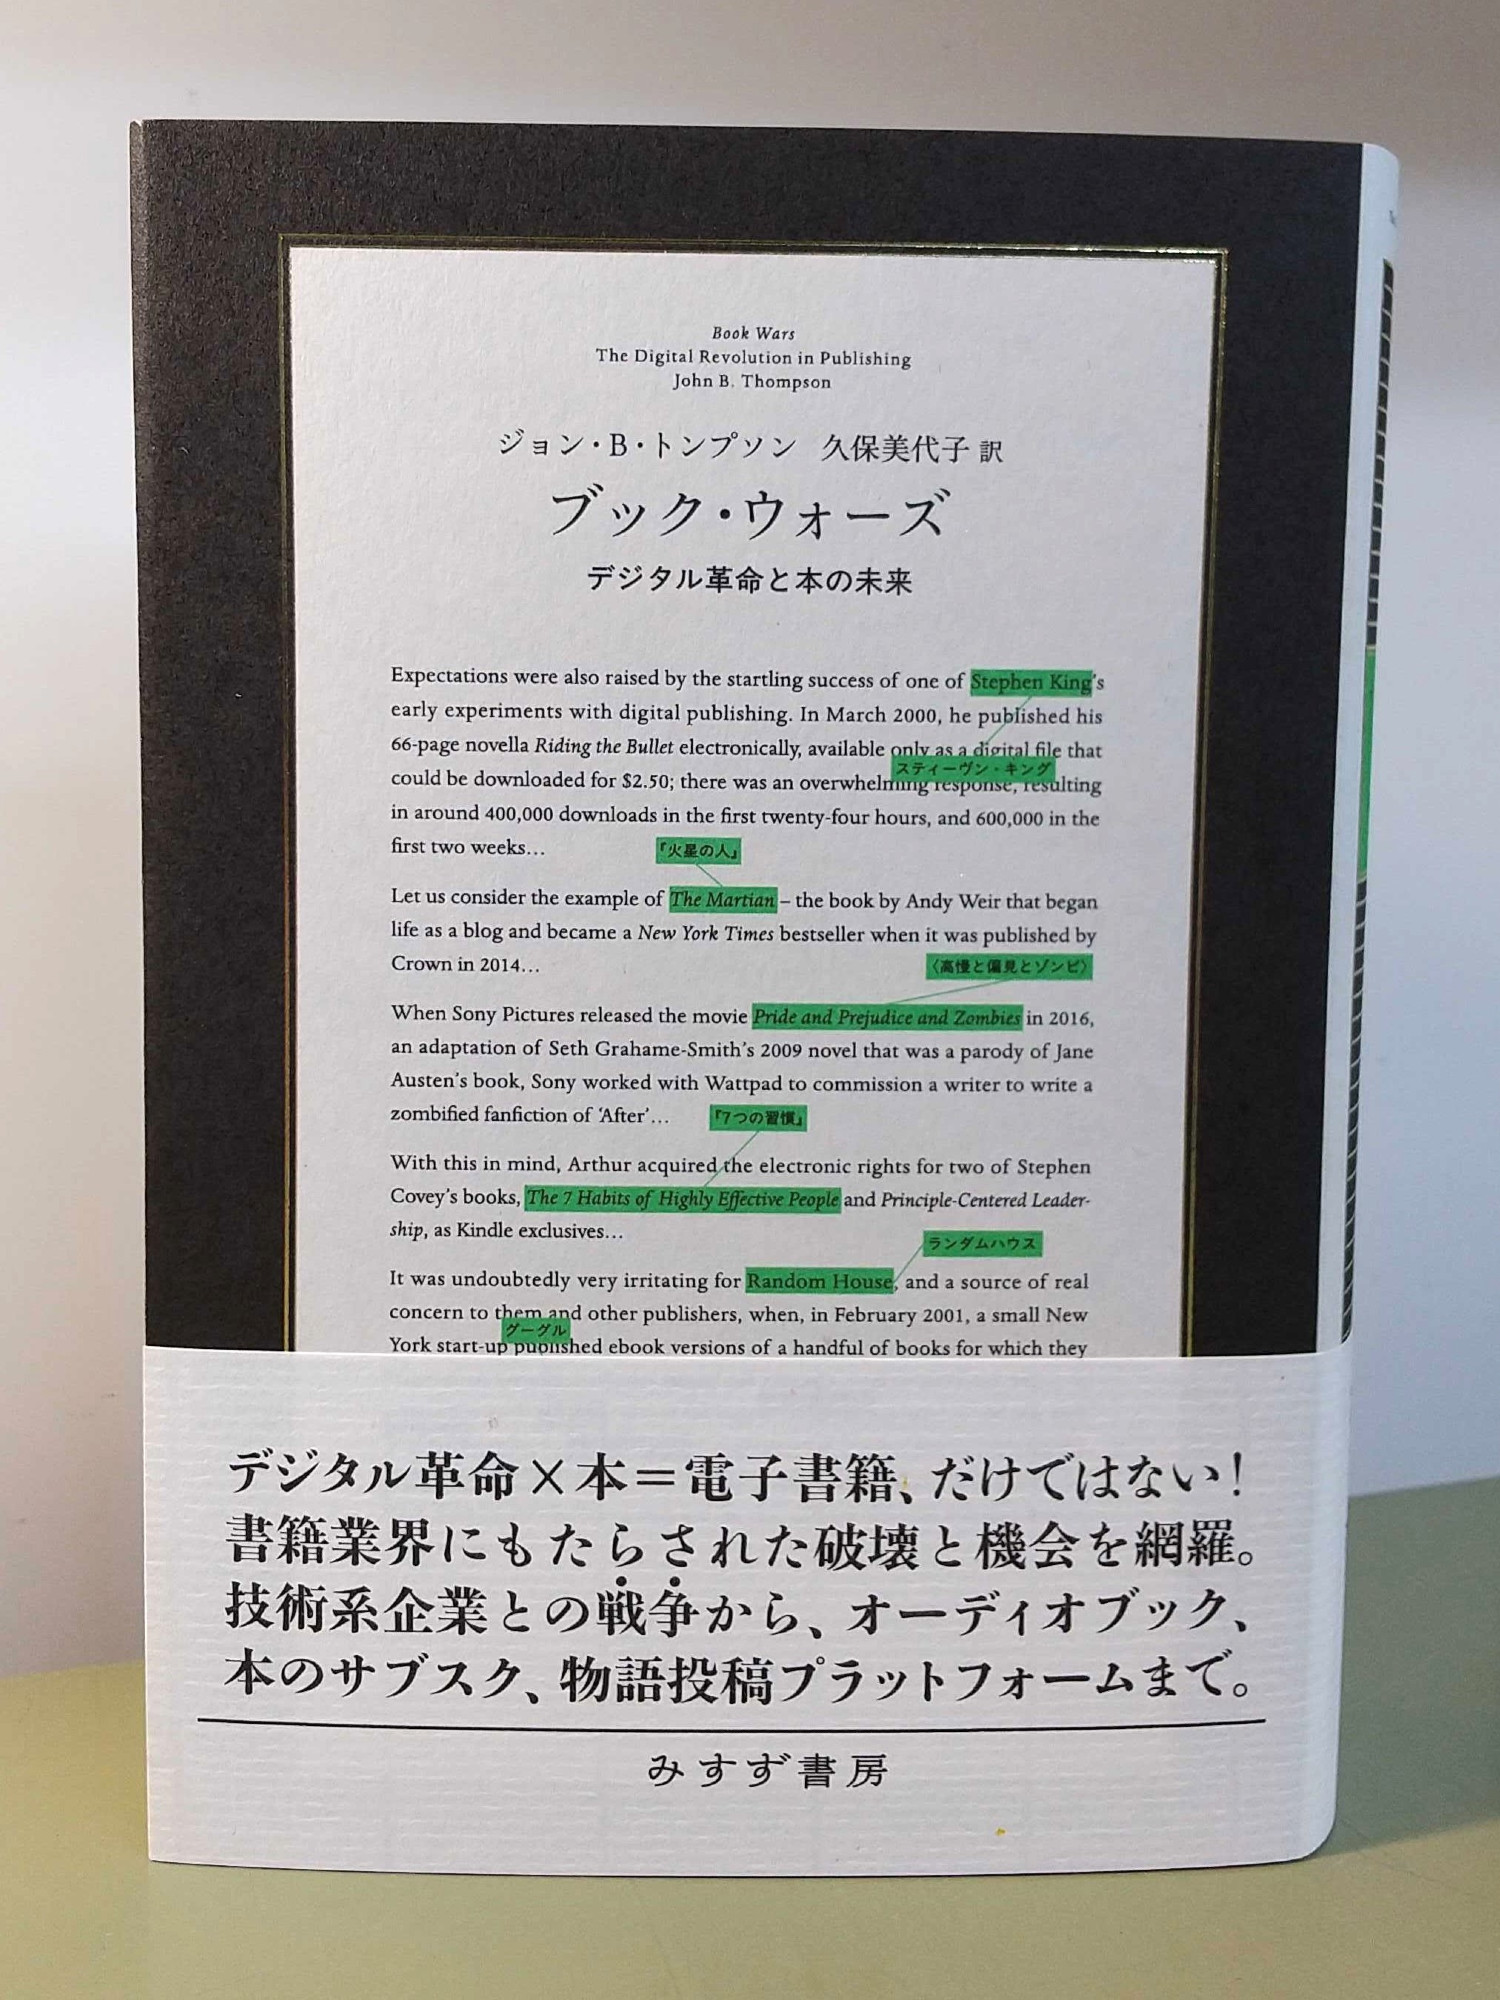 Book Wars
The Digital Revolution in Publishing
John B. Thompson
ジョン・B・トンプソン 久保美代子 訳
ブック・ウォーズ
デジタル革命と本の未来
Expectations were also raised by the startling success of one of Stephen King's
early experiments with digital publishing. In March 2000, he published his
66-page novella Riding the Bullet electronically, available only as a digital file that
スティーヴン・キング
could be downloaded for $2.50; there was an overwhelming response, resulting
in around 400,000 downloads in the first twenty-four hours, and 600,000 in the
first two weeks…
『火星の人』
Let us consider the example of The Martian – the book by Andy Weir that began
life as a blog and became a New York Times bestseller when it was published by
Crown in 2014…
〈高慢と偏見とゾンビ〉
When Sony Pictures released the movie Pride and Prejudice and Zombies in 2016,
an adaptation of Seth Grahame-Smith's 2009 novel that was a parody of Jane
Austen's book, Sony worked with Wattpad to commission a writer to write a
zombified fanfiction of ‘After’…
『7つの習慣』
With this in mind, Arthur acquired the electronic rights for two of Stephen
Covey's books, The 7 Habits of Highly Effective People and Principle-Centered Leader-
ship, as Kindle exclusives…
ランダムハウス
It was undoubtedly very irritating for Random House, and a source of real
concern to them and other publishers, when, in February 2001, a small New
グーグル
York start-up published ebook versions of a handful of books for which they
デジタル革命×本=電子書籍、だけではない!
書籍業界にもたらされた破壊と機会を網羅。
技術系企業との戦争から、オーディオブック、
本のサブスク、物語投稿プラットフォームまで。
みすず書房